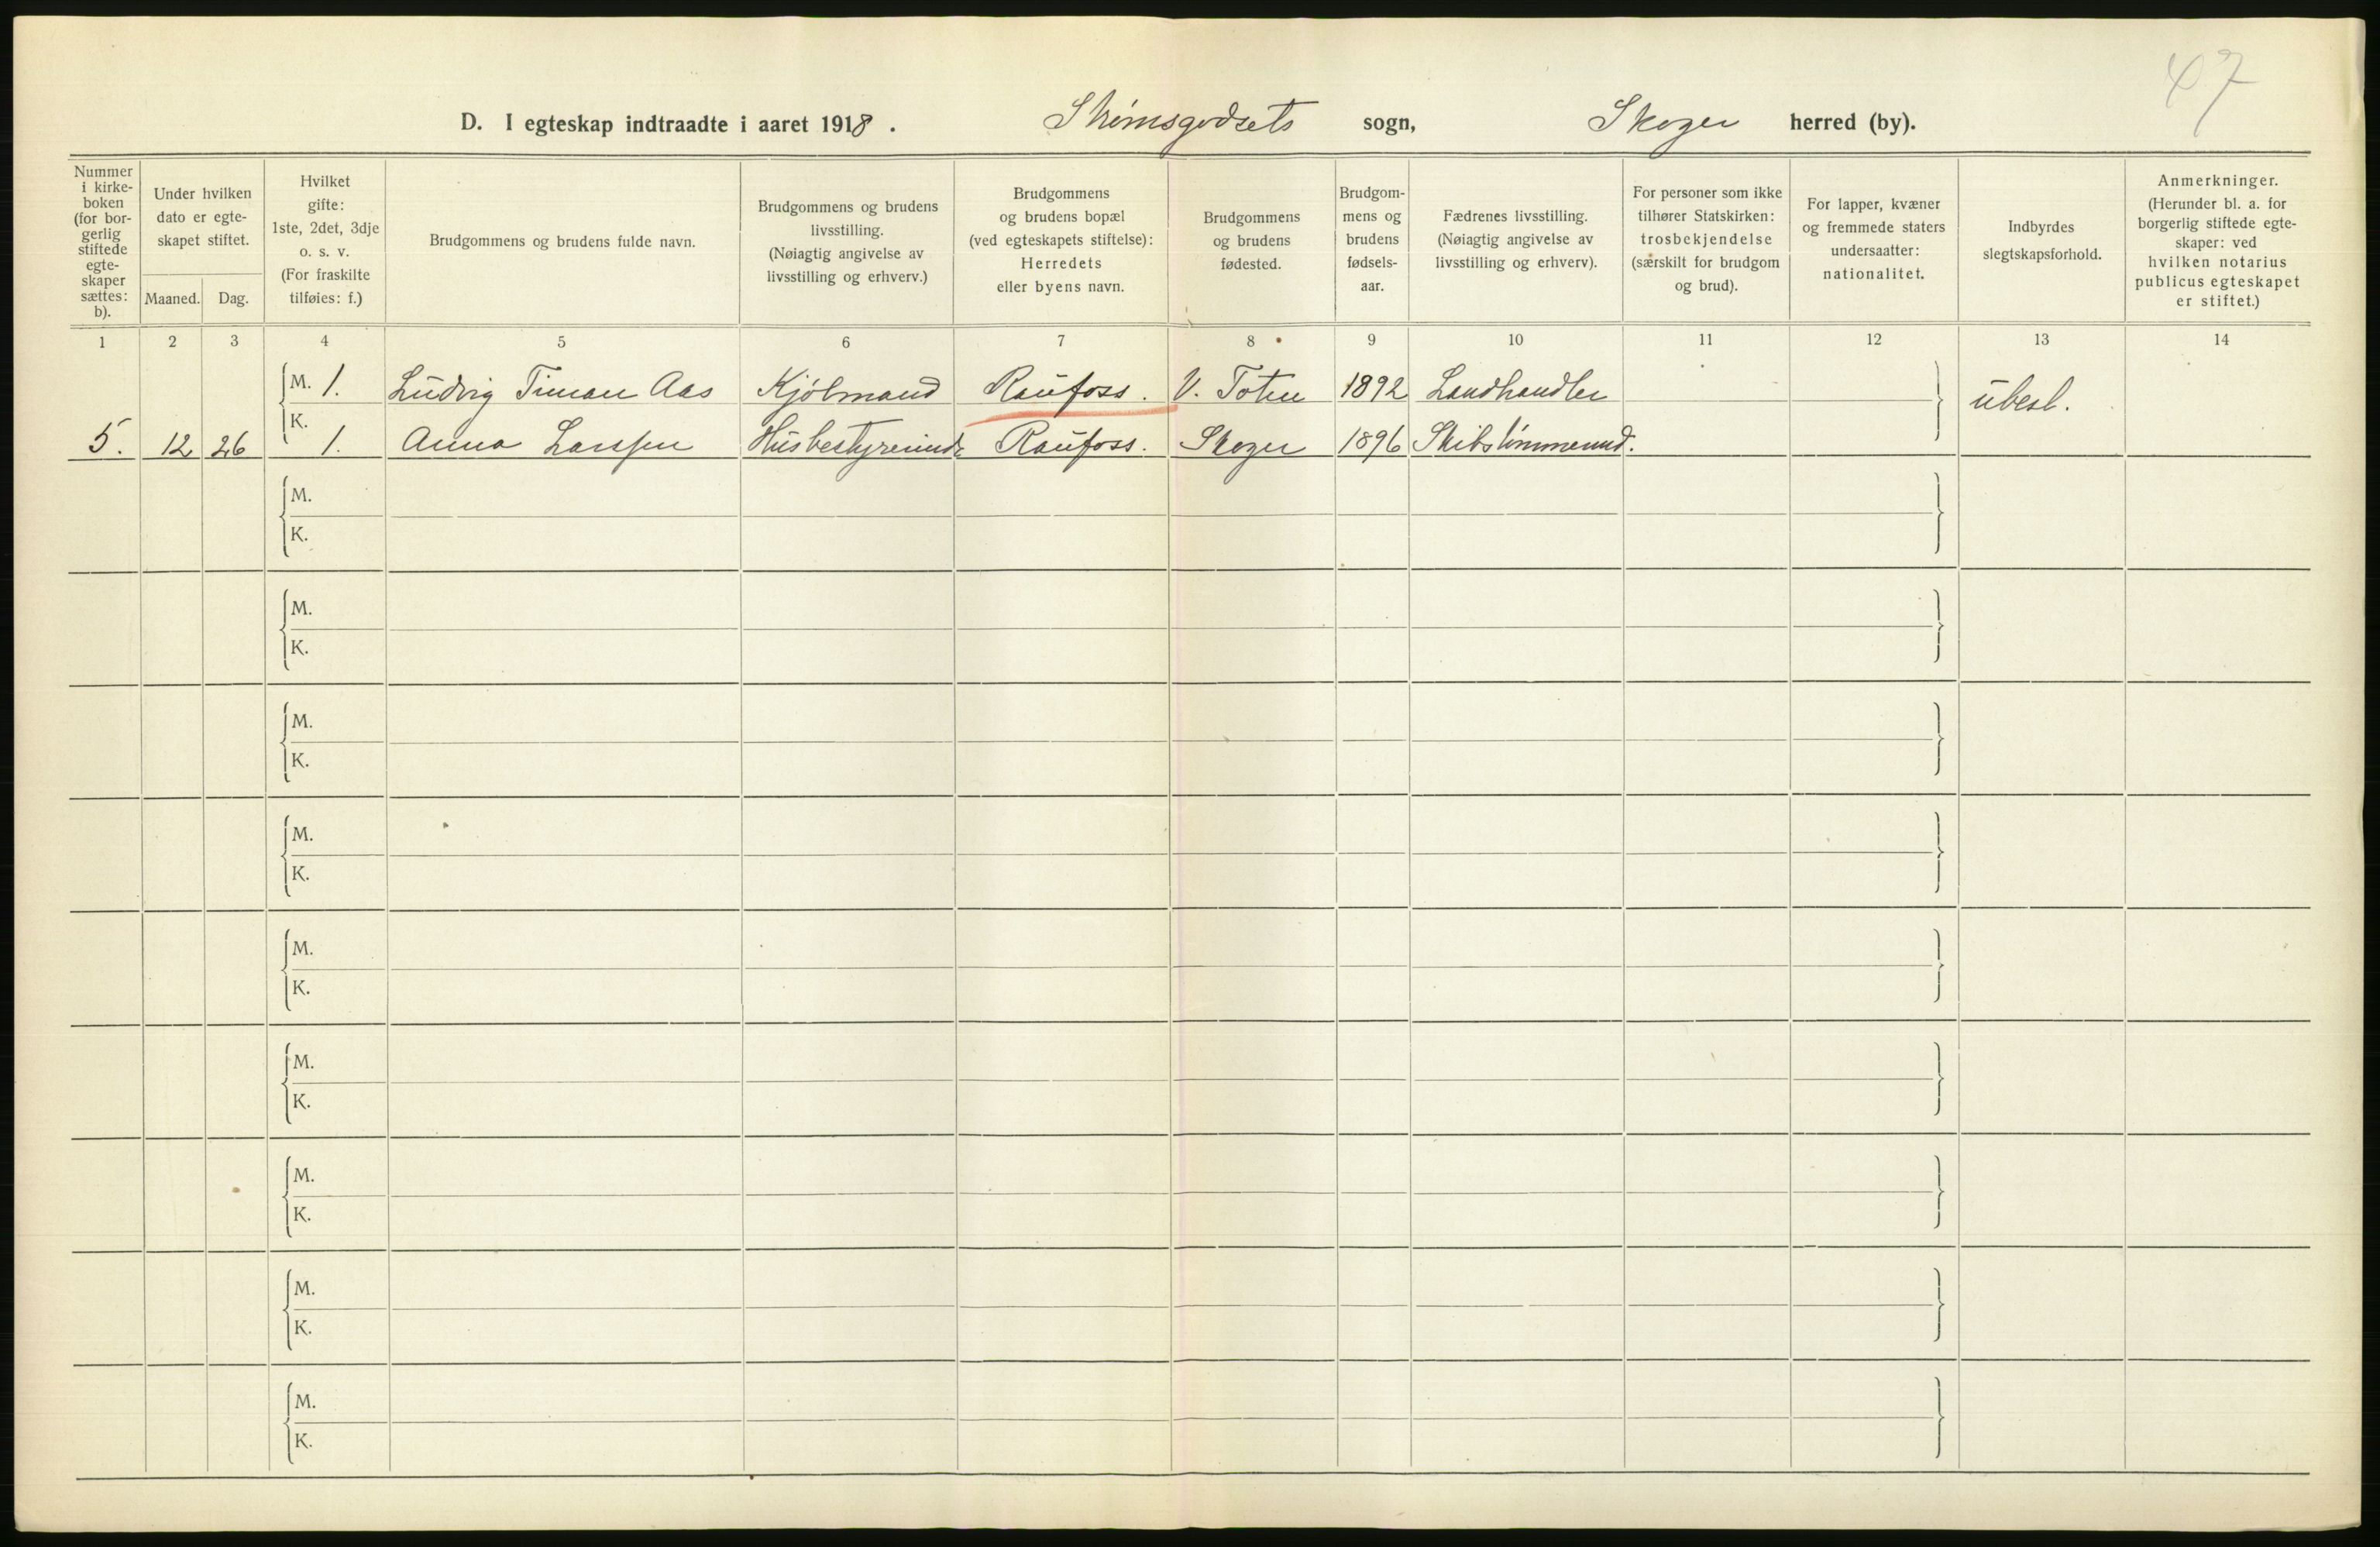 47
D. I egteskap indtraadte i aaret 1918. Strömsgodsets sogn, Skoger herred (by).
Nummer i kirkeboken (for borgerlig stiftede egteskaper sættes: b).
Under hvilken dato er egteskapet stiftet.
Maaned. Dag.
Hvilket gifte: 1ste, 2det, 3dje o. s. v. (For fraskilte tilføies: f.)
Brudgommens og brudens fulde navn.
Brudgommens og brudens livsstilling. (Nøiagtig angivelse av livsstilling og erhverv.)
Brudgommens og brudens bopæl (ved egteskapets stiftelse): Herredets eller byens navn.
Brudgommens og brudens fødested.
Brudgommens og brudens fødselsaar.
Fædrenes livsstilling. (Nøiagtig angivelse av livsstilling og erhverv).
For personer som ikke tilhører Statskirken: trosbekjendelse (særskilt for brudgom og brud).
For lapper, kvæner og fremmede staters undersaatter: nationalitet.
Indbyrdes slegtskapsforhold.
Anmerkninger. (Herunder bl. a. for borgerlig stiftede egteskaper: ved hvilken notarius publicus egteskapet er stiftet.)
1 2 3 4 5 6 7 8 9 10 11 12 13 14
M. 1. Ludvig Timan Aas Kjöbmand Raufoss. V. Toten 1892 Landhandler ubesl.
5. 12 26 K. 1. Anna Larssen Husbestyrerinde Raufoss. Skoger 1896 Skibstömmermd.
M.
K.
M.
K.
M.
K.
M.
K.
M.
K.
M.
K.
M.
K.
M.
K.
M.
K.